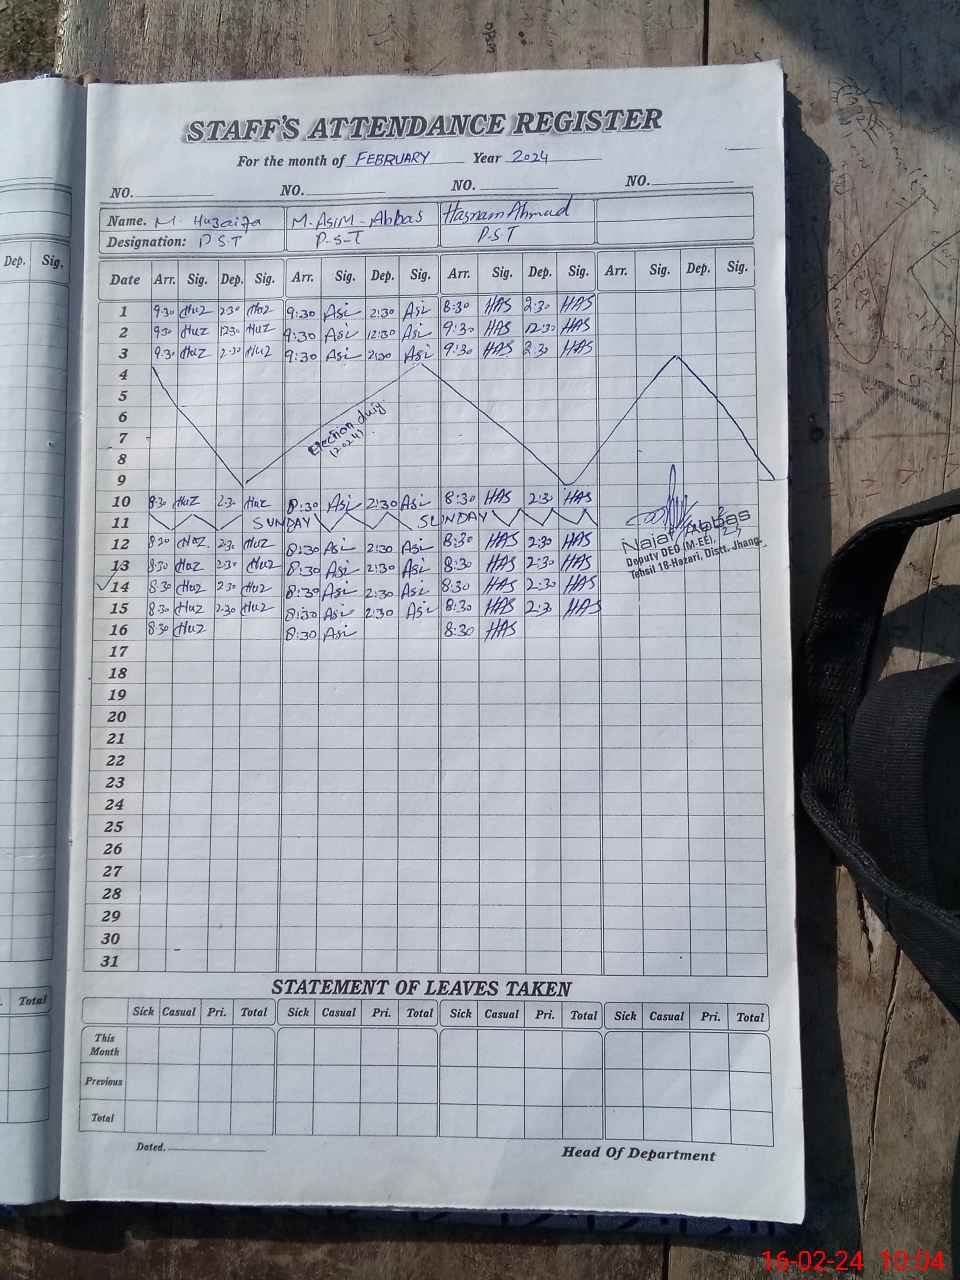 STAFF'S ATTENDANCE REGISTER
For the month of FEBRUARY Year 2024
NO. NO. NO. NO.
Name. M. Huzaifa M. Asim-Abbas Hasnam Ahmad
Designation: P.S.T P-S-T P.S.T
Dep. Sig.
Date Arr. Sig. Dep. Sig. Arr. Sig. Dep. Sig. Arr. Sig. Dep. Sig. Arr. Sig. Dep. Sig.
1 9:30 Huz 2:30 Huz 9:30 Asi 2:30 Asi 8:30 HAS 2:30 HAS
2 9:30 Huz 12:30 Huz 9:30 Asi 12:30 Asi 9:30 HAS 12:30 HAS
3 9:30 Huz 2:30 Huz 9:30 Asi 2:30 Asi 9:30 HAS 2:30 HAS
4
5
6
7
8
9
Election duty
(2024)
10 8:30 Huz 2:30 Huz 8:30 Asi 2:30 Asi 8:30 HAS 2:30 HAS
11 SUNDAY SUNDAY
12 8:30 Huz 2:30 Huz 8:30 Asi 2:30 Asi 8:30 HAS 2:30 HAS
13 8:30 Huz 2:30 Huz 8:30 Asi 2:30 Asi 8:30 HAS 2:30 HAS
14 8:30 Huz 2:30 Huz 8:30 Asi 2:30 Asi 8:30 HAS 2:30 HAS
15 8:30 Huz 2:30 Huz 8:30 Asi 2:30 Asi 8:30 HAS 2:30 HAS
16 8:30 Huz 8:30 Asi 8:30 HAS
Najaf Abbas
Deputy DEO (M-EE),
Tehsil 18-Hazari, Distt. Jhang.
17
18
19
20
21
22
23
24
25
26
27
28
29
30
31
STATEMENT OF LEAVES TAKEN
Total
Sick Casual Pri. Total Sick Casual Pri. Total Sick Casual Pri. Total Sick Casual Pri. Total
This
Month
Previous
Total
Dated.
Head Of Department
16-02-24 10:04